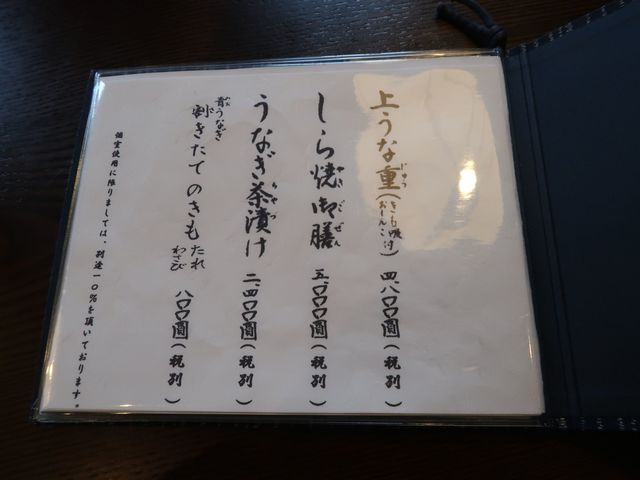 上うな重(きも吸付 おしんこ) 四、八〇〇圓(税別)
しら焼御膳 五、〇〇〇圓(税別)
うなぎ茶漬け 二、四〇〇圓(税別)
青うなぎ 割きたてのきも たれ わさび 八〇〇圓(税別)
個室使用に限りましては、別途一〇%を頂いております。